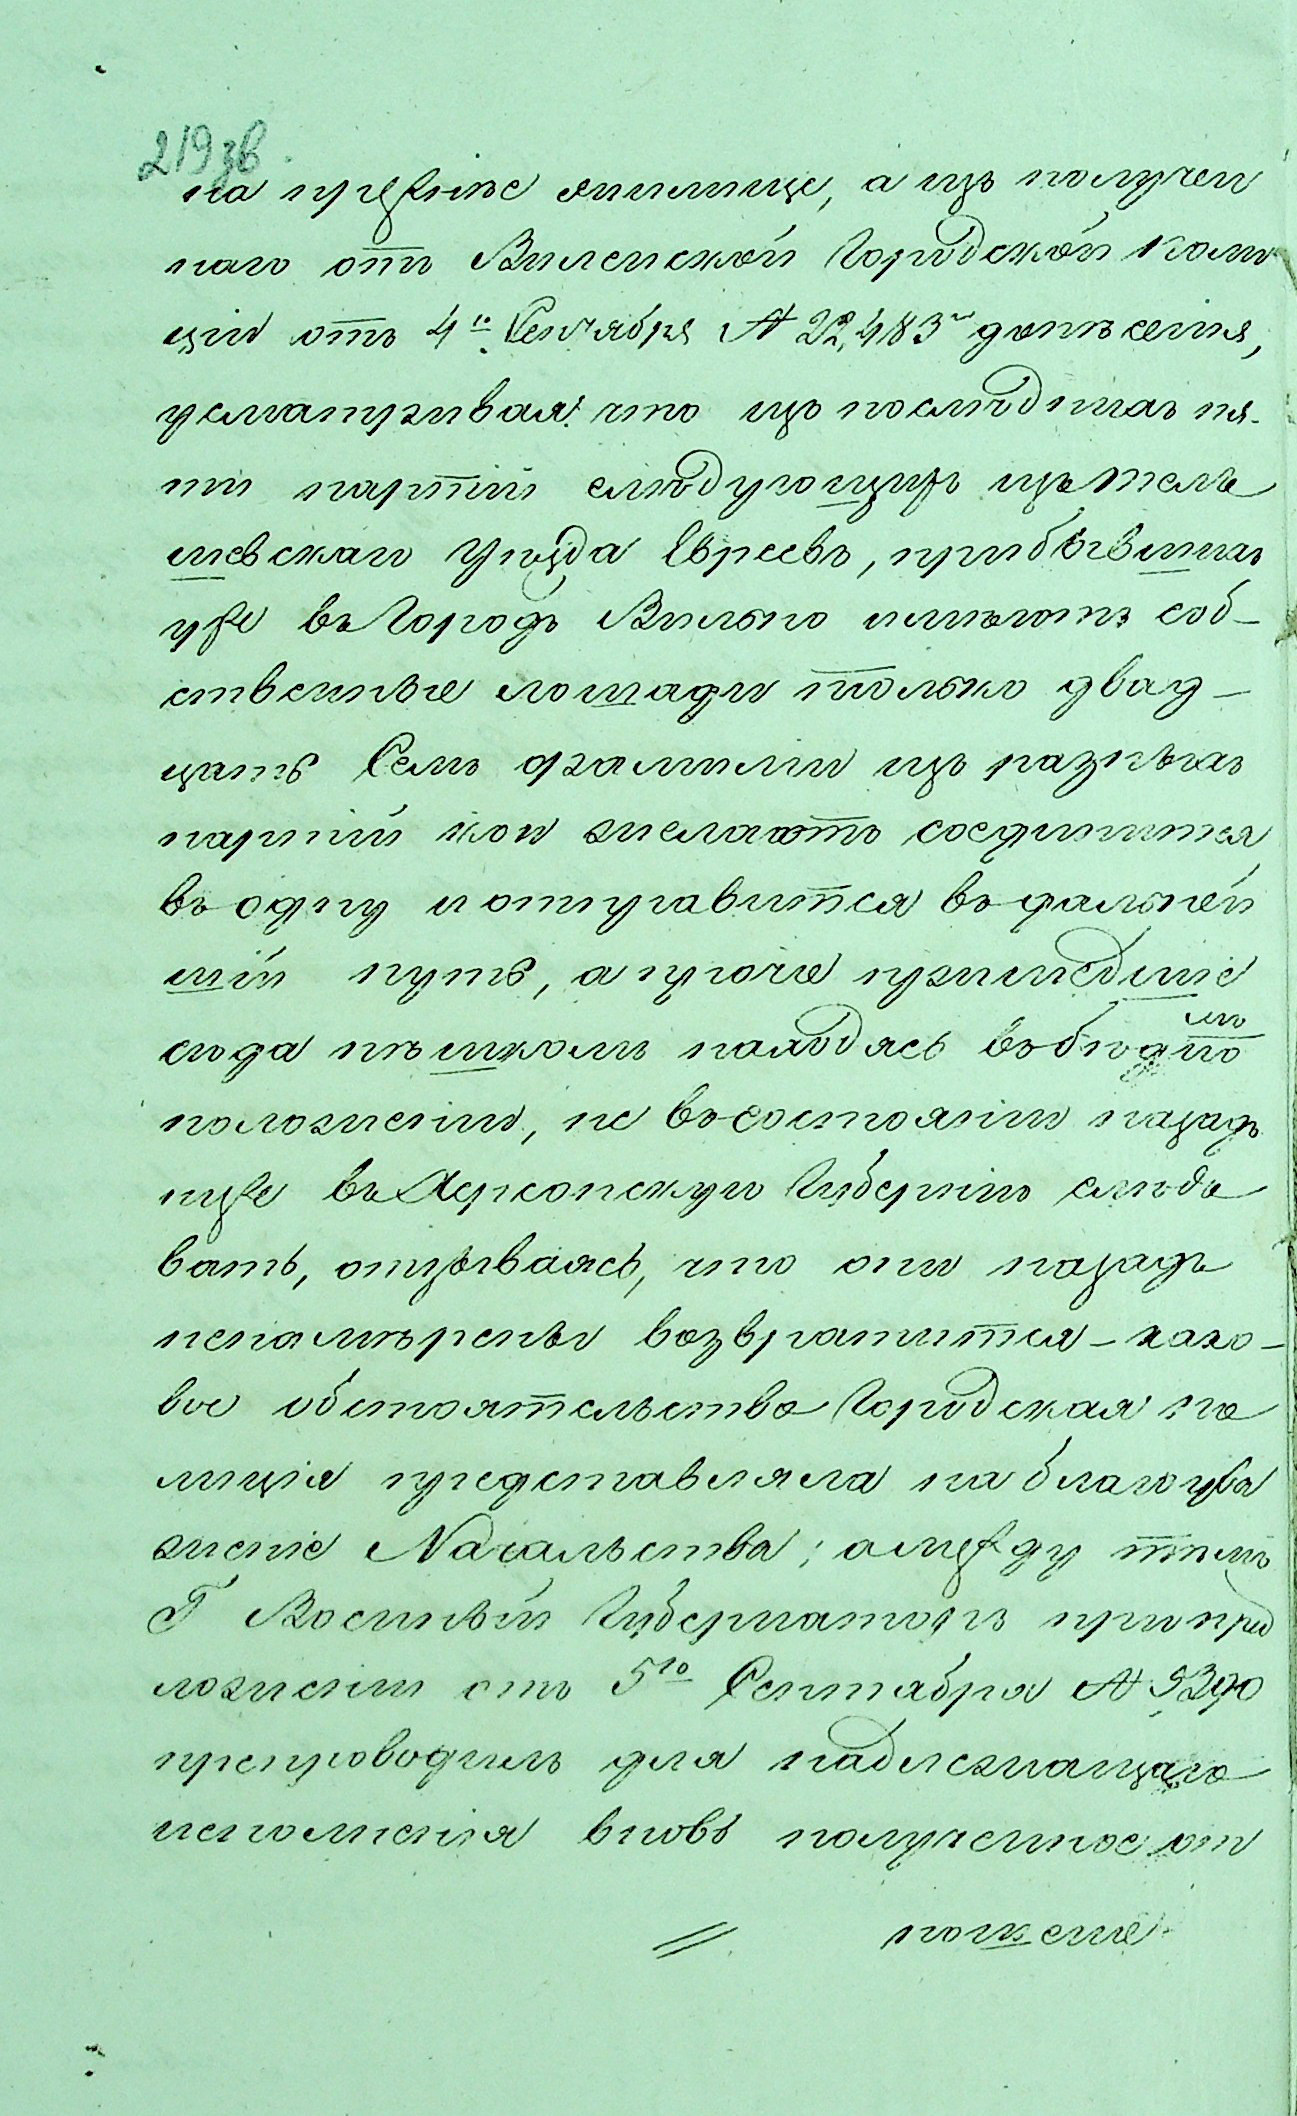 219 зв.
на прежнѣе жилище, а изъ получен
наго отъ Виленской Городской поли
ціи отъ 4го Сентября № 22,483м донѣсенія,
усматривая: что изъ послѣднихъ пя-
ти партій слѣдующихъ изъ Телъ
шевскаго Уѣзда Евреевъ, прибывшихъ
уже въ Городъ Вильно имѣютъ соб-
ственные лошади только двад-
цать Семь фамилій изъ разныхъ
партій кои желаютъ соединится
въ одну и отправится въ дальней
шій путь, а прочіе пришедшіе
сюда пѣшкомъ находясь въ бѣдно
мъ
положеніи, не въ состояніи назадъ
ниже въ Херсонскую Губернію слѣдо
вать, отзываясь, что они назадъ
ненамѣрены возвратится – како-
вое обстоятельство Городская по
лиція представляла на благоува
женіе Начальства; а между тѣмъ
Г Военный Губернаторъ при пред
ложеніи отъ 5го Сентября № 9390
препроводилъ для надлежащаго
исполненія вновь полученное от
ношеніе